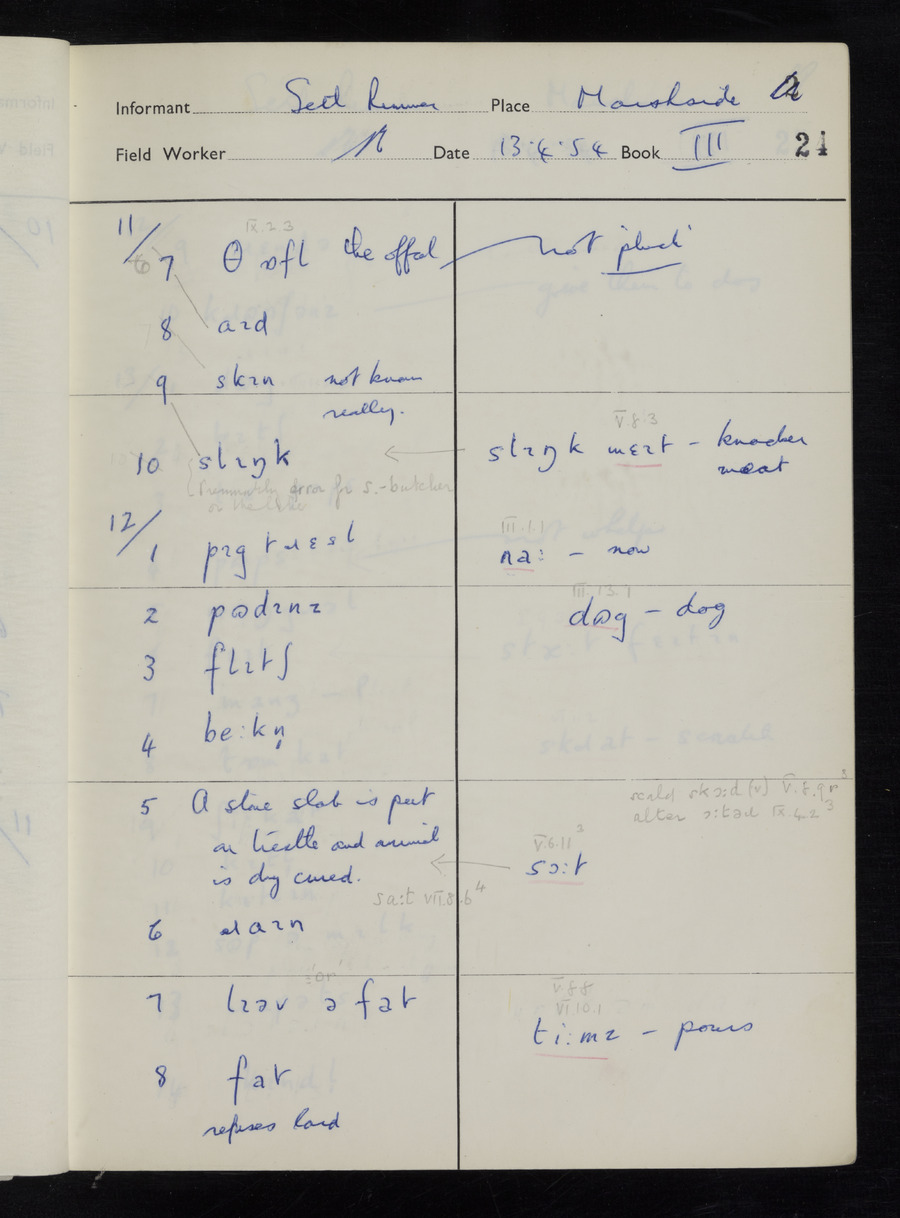 Informant Seth Rimmer Place Marshside
Field Worker Date 13·4·54 Book III 24
IX.2.3
11/
6 7 θ ɒfl the offal — not pluck
8 aɪd
9 skɪn not known
really.
V.8.3
10 slɪŋk ← slɪŋk mɛɪt – knacker
meat
Presumably error for s.-butcher
12/
III.1.1
1 pɪg na: – now
III.13.1
2 dɒg – dog
3 flɪtʃ
4 be:kn̩
5 A stone slab is put
on trestle and animal
is dry cured.
scald skɔ:d (v) V.8.9n 3
alter ɔ:təɹ IX.4.2 3
V.6.11 3
← sɔ:t
sa:t VII.8.6 4
6 ɹaɪn
7 lɪəv ə fat
V.8.8
VI.10.1
ti:mz – pours
8 fat
refuses lard